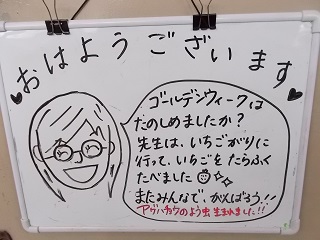 おはようございます
ゴールデンウィークは
たのしめましたか?
先生は、いちごがりに
行って、いちごをたらふく
たべました
またみんなで、がんばろう!!
アゲハカクのよう虫 生まれました!!